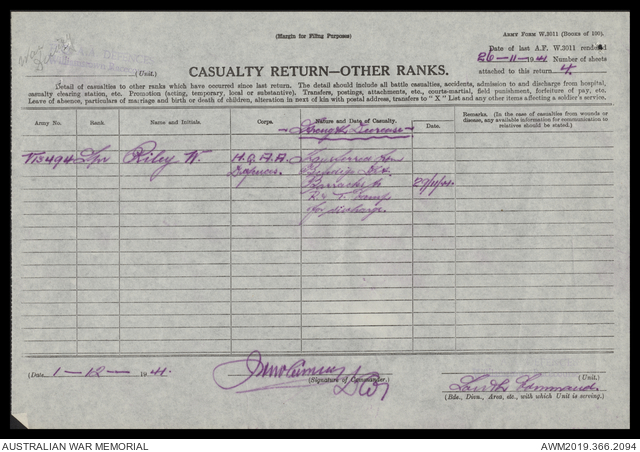 (Margin for Filing Purposes)
ARMY FORM W.3011 (Books of 100).
Date of last A.F. W.3011 rendered
26-11-1941 Number of sheets
attached to this return 4.
(Unit.)
CASUALTY RETURN—OTHER RANKS.
Detail of casualties to other ranks which have occurred since last return. The detail should include all battle casualties, accidents, admission to and discharge from hospital,
casualty clearing station, etc. Promotion (acting, temporary, local or substantive). Transfers, postings, attachments, etc., courts-martial, field punishment, forfeiture of pay, etc.
Leave of absence, particulars of marriage and birth or death of children, alteration in next of kin with postal address, transfers to "X" List and any other items affecting a soldier's service.
Army No. Rank. Name and Initials. Corps. Nature and Date of Casualty. Date. Remarks. (In the case of casualties from wounds or disease, any information for communication to relatives should be stated.)
Strength Decrease
V13494 Spr Riley W. H.Q. A.A. Transferred from
Defences.
Barracks to 27/11/41.
R. & T. Depot
for discharge.
(Date 1-12-1941.
(Signature of Commander.)
(Unit.)
Southn Command.
(Bde., Divn., Area, &c., with which Unit is serving.)
AUSTRALIAN WAR MEMORIAL
AWM2019.366.2094